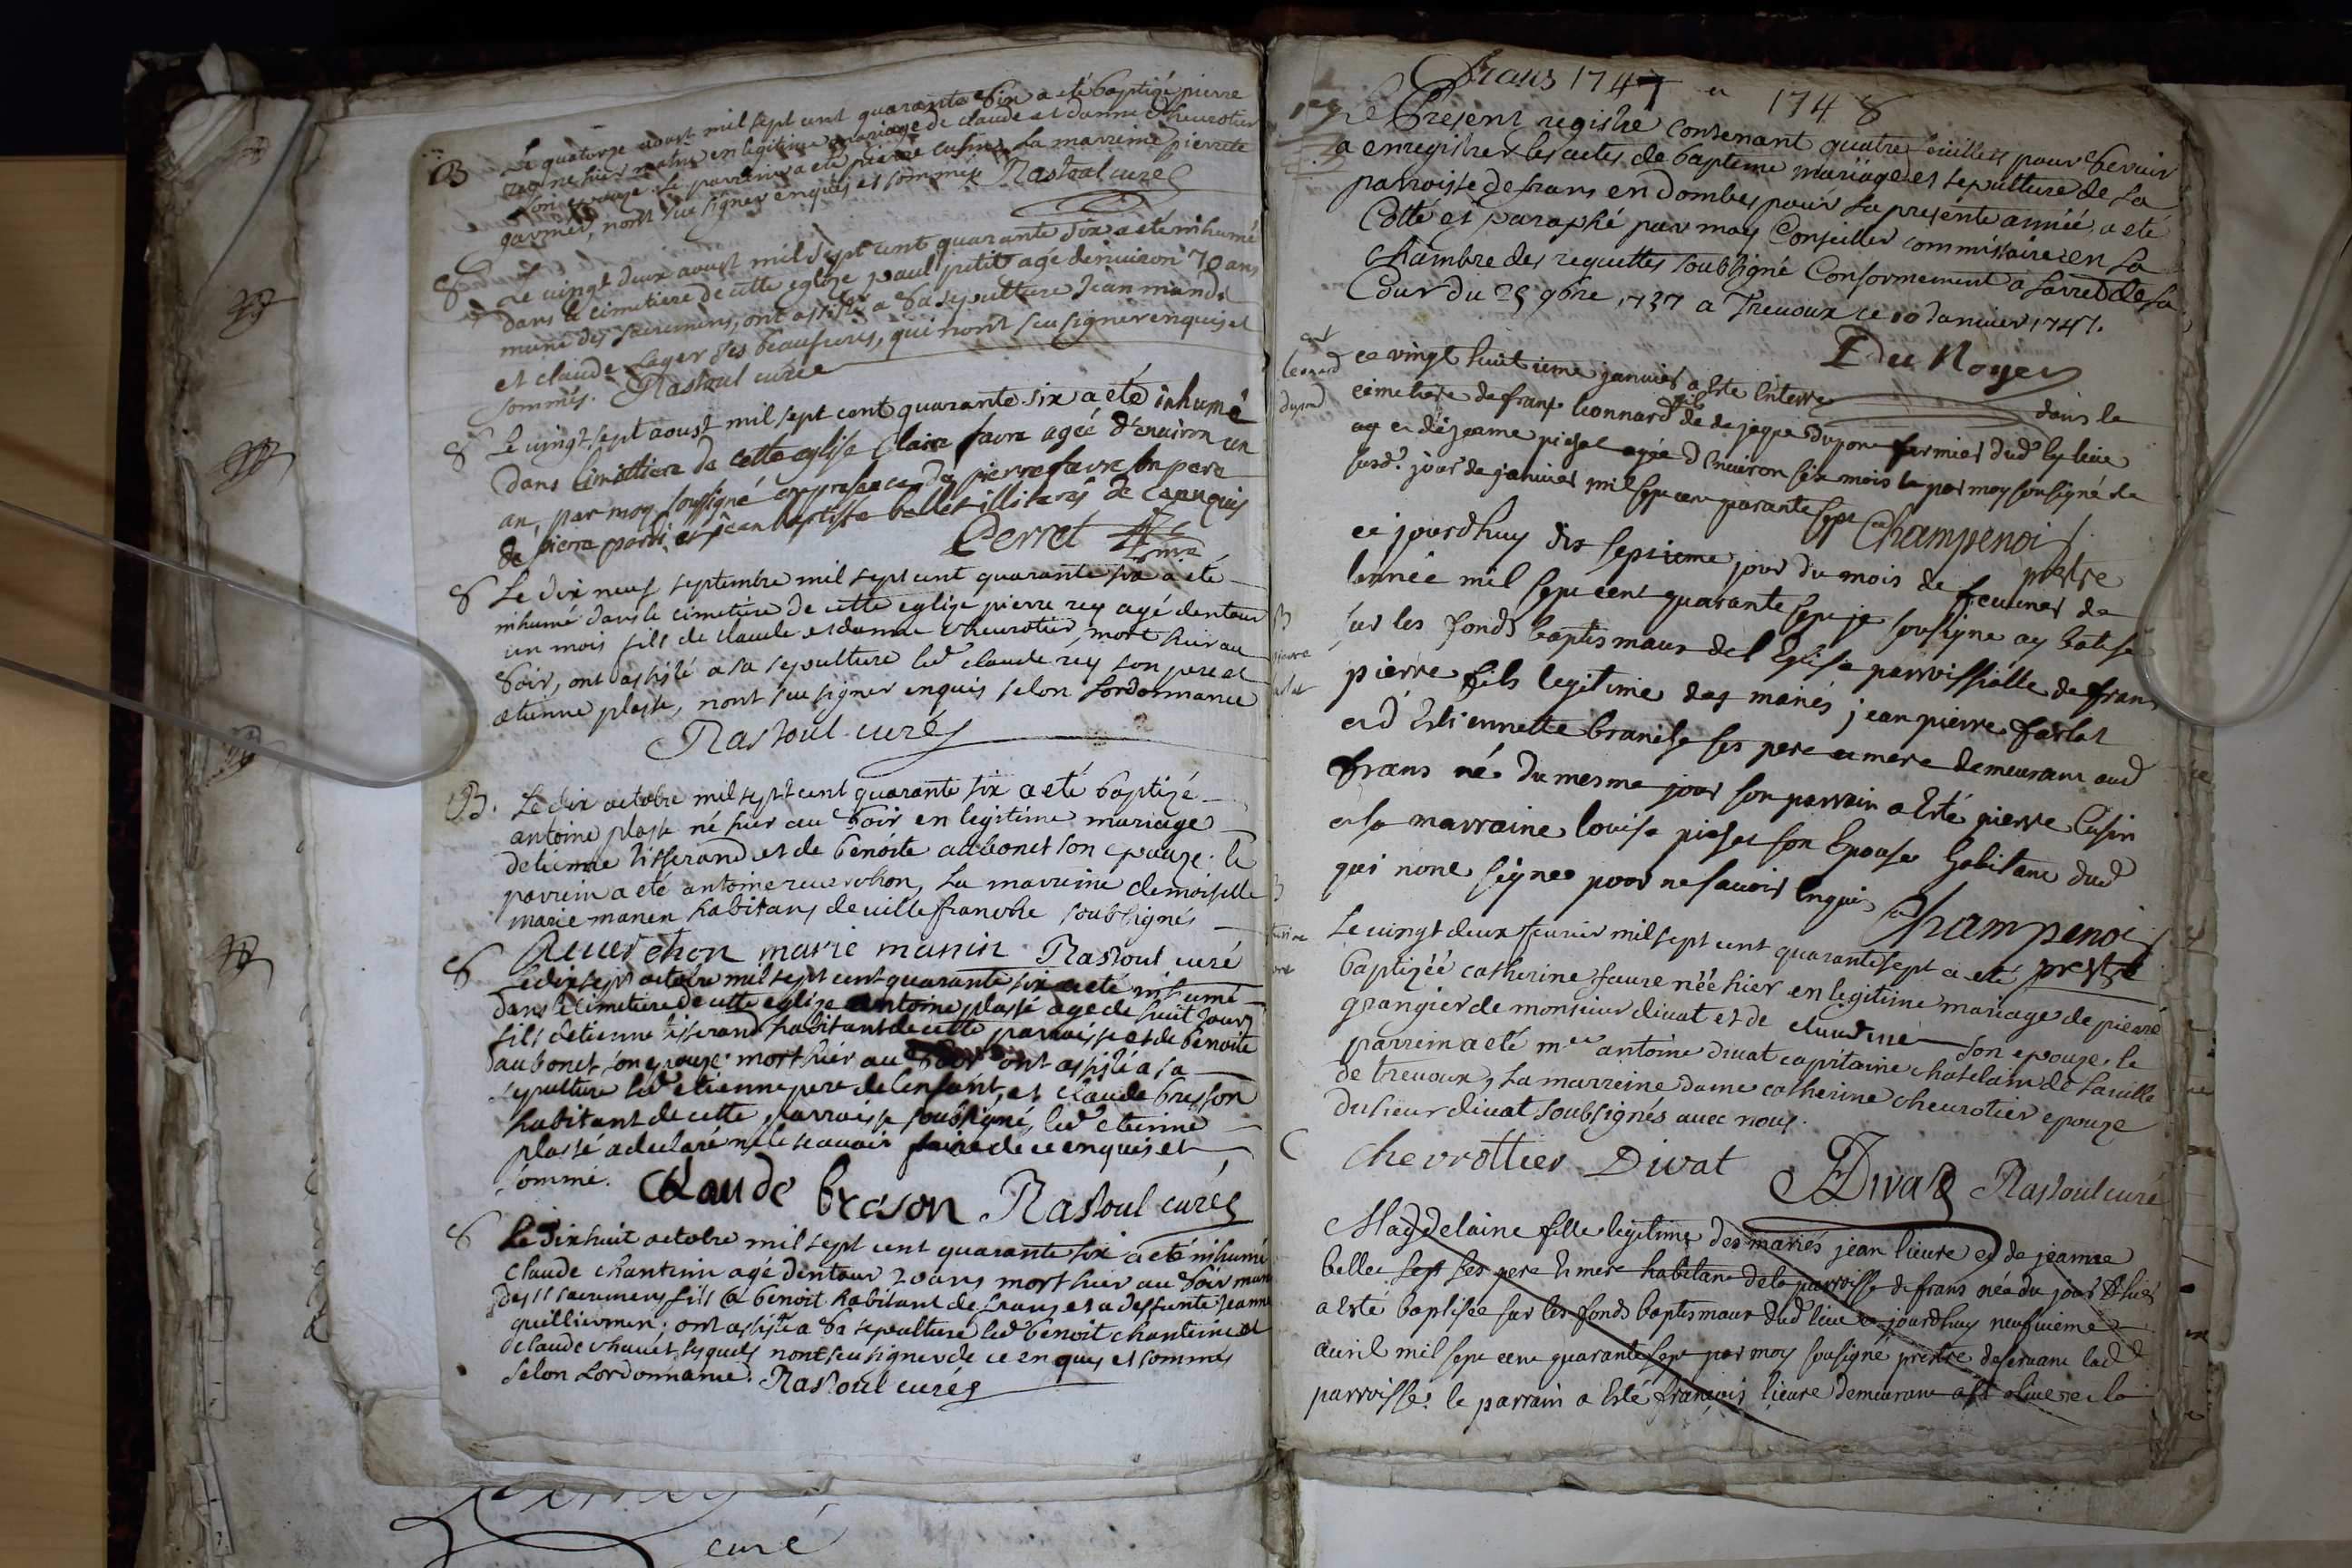 B Le quatorze aoust mil sept cent quarante six a eté baptizé pierre
rey né hier matin en legitime mariage de claude et danne Cheurotier
son epouze. le parrein a eté pierre cusin, La marreine pierrete
garmier, nont sceu signer enquis et sommés Rastoul curé
S Le vingt deux aoust mil sept cent quarante six a eté inhumé
dans le cimetiere de cette eglize paul petit agé denuiron 70 ans
muni des sacremens, ont assisté a sa sepulture Jean
et claude Lager ses beaufreres, qui nont sceu signer enquis et
sommés. Rastoul curé
S Le vingt sept aoust mil sept cent quarante six a eté inhumé
dans limittiere de cette eglise Claire favre agée d'enuiron un
an, par moy soussigné en presence de pierre favre son pere
de pierre et jean baptiste bellet illiterés de ce enquis
Perret
S Le dix neuf septembre mil sept cent quarante six a eté
inhumé dans le cimetiere de cette eglize pierre rey agé dentour
un mois fils de claude et danne Cheurotier, mort hier au
soir, ont assisté a sa sepulture led claude rey son pere et
etienne plasse, nont sceu signer enquis selon Lordonnance
Rastoul curé
B. Le dix octobre mil sept cent quarante six a eté baptizé
antoine plasse né hier au soir en legitime mariage
detienne tisserand et de benoite aubonet son epouze. le
parrein a eté antoine reuerchon, La marreine demoiselle
marie manin habitans de villefranche soubsignés
Reuerchon marie manin Rastoul curé
S Le dix sept octobre mil sept cent quarante six a eté inhumé
dans le cimetiere de cette eglize antoine plasse agé de huit jours
fils detienne tisserand habitant de cette parroisse et de benoite
aubonet son epouze mort hier au soir ont assisté a sa
sepulture led etienne pere de lenfant, et claude bresson
habitant de cette parroisse soubsigné, led etienne
plasse a declaré ne le scauoir faire de ce enquis et
sommé. Claude breson Rastoul curé
S Le dix huit octobre mil sept cent quarante six a eté inhumé
claude chanterin agé dentour 20 ans mort hier au soir muni
des sts sacremens fils a benoit habitant de frans et a deffunte jeanne
; ont assisté a sa sepulture led benoit chanterin et
claude chanet, lesquels nont sceu signer de ce enquis et sommés
selon Lordonnance. Rastoul curé
curé
frans 1747 et 1748
Le Present registre contenant quatre feuillets pour servir
a enregistrer les actes de bapteme mariage et sepulture de la
parroisse de frans en dombes pour la presente année, a eté
Cotté et paraphé par moy Conseiller commissaire en la
chambre des requettes soubsigné Conformement a larret de la
Cour du 25 9bre 1737 a Treuoux ce 10 Januier 1747.
Du Noyer
leonard
dupond
ce vingt huit ieme januier a este enterré dans le
cimetiere de frans leonnard fils de jaque dupon fermier dud lieu
et de jeanne pichat agée d'enuiron six mois par moy sousigné le
susd. jour de januier mil sept cent quarante sept Champenois
prestre
B
pierre
farlat
ce jourdhuy dix septieme jour du mois de feurier de
lannée mil sept cent quarante sept je sousigne ay batisé
sur les fonds baptismaux de l'Eglise parroissialle de frans
pierre fils legitime des mariés jean pierre farlat
et d'Estiennette branche ses pere et mere demeurant aud
frans né du mesme jour son parrain a Esté pierre Cusin
et sa marraine louise pichat son Epouse habitant dud
qui n'ont signer pour ne sauoir Enquis Champenois
prestre
B
Le vingt deux feurier mil sept cent quarante sept a eté
baptizéé catherine faure néé hier en legitime mariage de pierre
grangier de monsieur diuat et de claudine son epouze. le
parrein a eté mre antoine diuat capitaine chatelain de La ville
de treuoux, La marreine dame catherine cheurotier epouze
du sieur diuat soubsignés auec nous.
Chevrottier Divat Divat Rastoul curé
Magdelaine fille legitime des mariés jean lieure et de jeanne
bellet ses pere et mere habitant de la parroisse de frans née du jour d'hier
a esté baptisée sur les fonds baptismaux dud lieu ce jourdhuy neufuieme
auril mil sept cent quarante sept par moy sousigné prestre deseruant lad
parroisse. le parrain a esté françois lieure demeurant et la